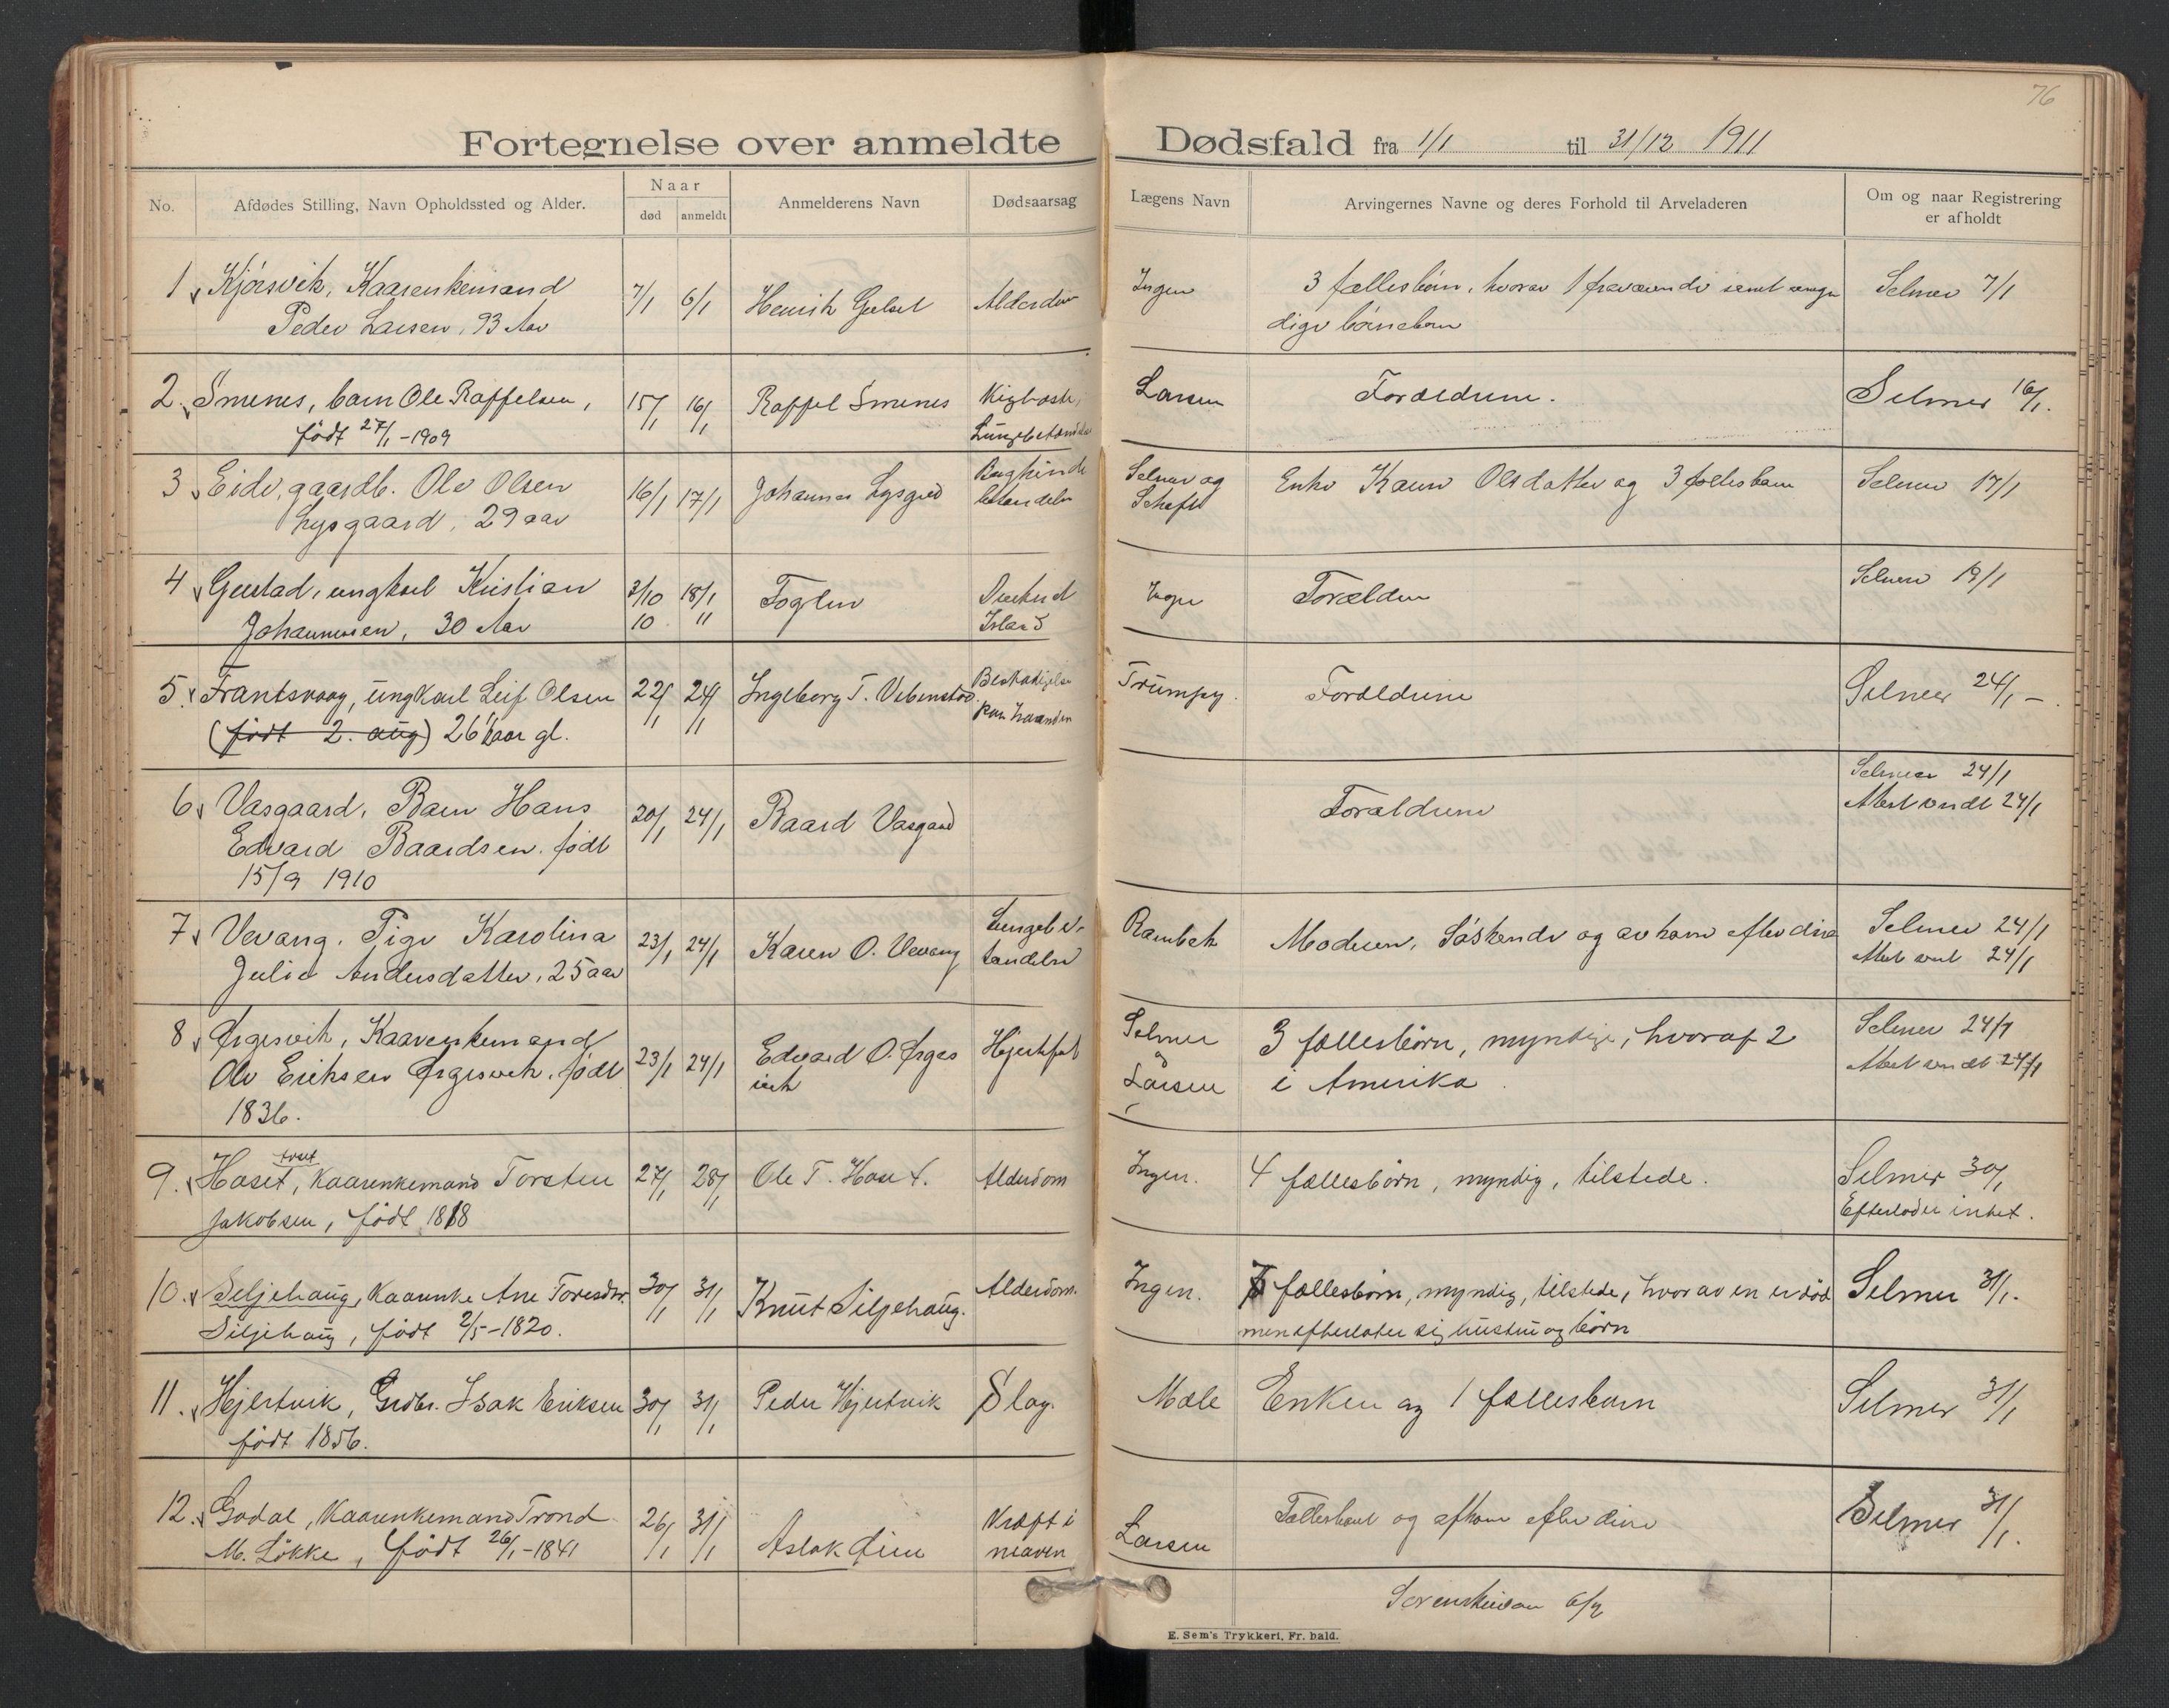 76
Fortegnelse over anmeldte Dødsfald fra 1/1 til 31/12 1911
No.
Afdødes Stilling, Navn Opholdssted og Alder.
Naar
død
anmeldt
Anmelderens Navn
Dødsaarsag
Lægens Navn
Arvingernes Navne og deres Forhold til Arveladeren
Om og naar Registrering
er afholdt
1 Kjørsvik, Kaarenkemand
Peder Larsen, 93 Aar
7/1 6/1
Henrik
Alderdom
Ingen
3 fællesbørn, hvorav 1 fraværende samt
dige børnebørn
Selmer 7/1
2. Smenes, barn Ole Raffelsen,
født 27/1-1909
15/1 16/1
Raffel Smenes
Kighoste,
Lungebetændelse
Larsen
Forældrene.
Selmer 16/1.
3 Eide, gaardb. Ole Olsen
Lysgaard, 29 aar
16/1 17/1
Johannes Lysgård
Bughinde
betændelse
Selmer og
Enke Karen Olsdatter og 3 fællesbarn
Selmer 17/1
4 Gustad, ungkarl Kristian
Johannessen, 30 Aar
3/10 18/1
10 11
Foglen
Druknet
Island
Ingen
Forældre
Selmer 19/1
5. Frantsvaag, ungkarl Leif Olsen
(født 2. aug) 26 aar gl.
22/1 24/1
11
Ingeborg T. Vebenstad.
Beskadigelse
paa haanden
Trumpy.
Forældrene
Selmer 24/1 -.
6 Vasgaard, Barn Hans
Edvard Baardsen. født
15/9 1910
20/1 24/1
11 11
Baard Vasgaard
Forældrene
Selmer 24/1
Attest sendt 24/1
7 Vevang, Pige Karolina
Julie Andersdatter, 25 aar
23/1 24/1
Karen O. Vevang
Lungebe-
tændelse
Rambek
Moderen, Søskende og avkom efter disse
Selmer 24/1
Attest sendt 24/1
8 Ørgesvik, Kaarenkemand
Ole Eriksen Ørgesvik. født
1836.
23/1 24/1
Edvard O. Ørges
vik
Hjertefeil
Selmer
og
Larsen
3 fællesbørn, myndige, hvoraf 2
i Amerika.
Selmer 24/1
Attest sendt 24/1
9. Haset, Kaarenkemand Torsten
Jakobsen, født 1818
27/1 28/1
11
Ole T. Haset.
Alderdom
Ingen.
4 fællesbørn, myndig, tilstede.
Selmer 30/1
Efterlader intet.
10. Seljehaug, Kaarenke Ane Toresdtr.
Siljehaug, født 2/5-1820.
30/1 31/1
11 11
Knut Siljehaug.
Alderdom.
Ingen.
7 fællesbørn, myndig, tilstede, hvorav en er død
men efterlater sig hustru og børn
Selmer 31/1.
11. Hjertvik, Grdbr. Isak Eriksen
født 1856.
30/1 31/1
Peder Hjertvik
Slag.
Mæle
Enken og 1 fællesbarn
Selmer 31/1
12. Godal, Kaarenkemand Trond
M. Løkke, født 26/1-1841
26/1 31/1
Aslak
Kræft i
maven
Larsen
Fællesbarn og afkom efter disse
Selmer 31/1.
Sorenskriveren 6/2
E. Sem's Trykkeri, Fr. hald.